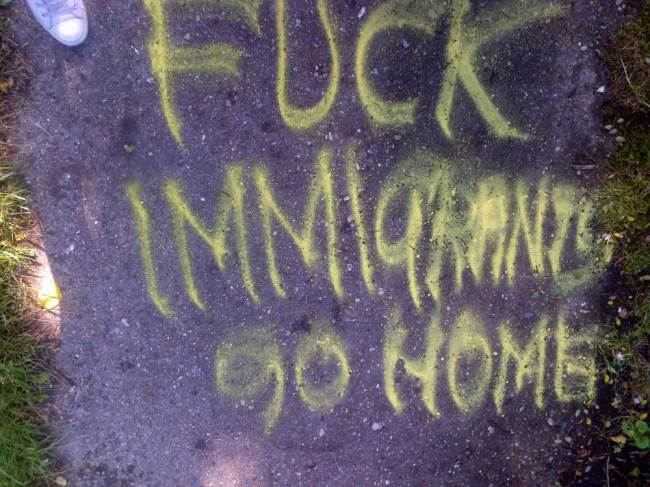 FUCK
IMMIgRAND
gO HOME